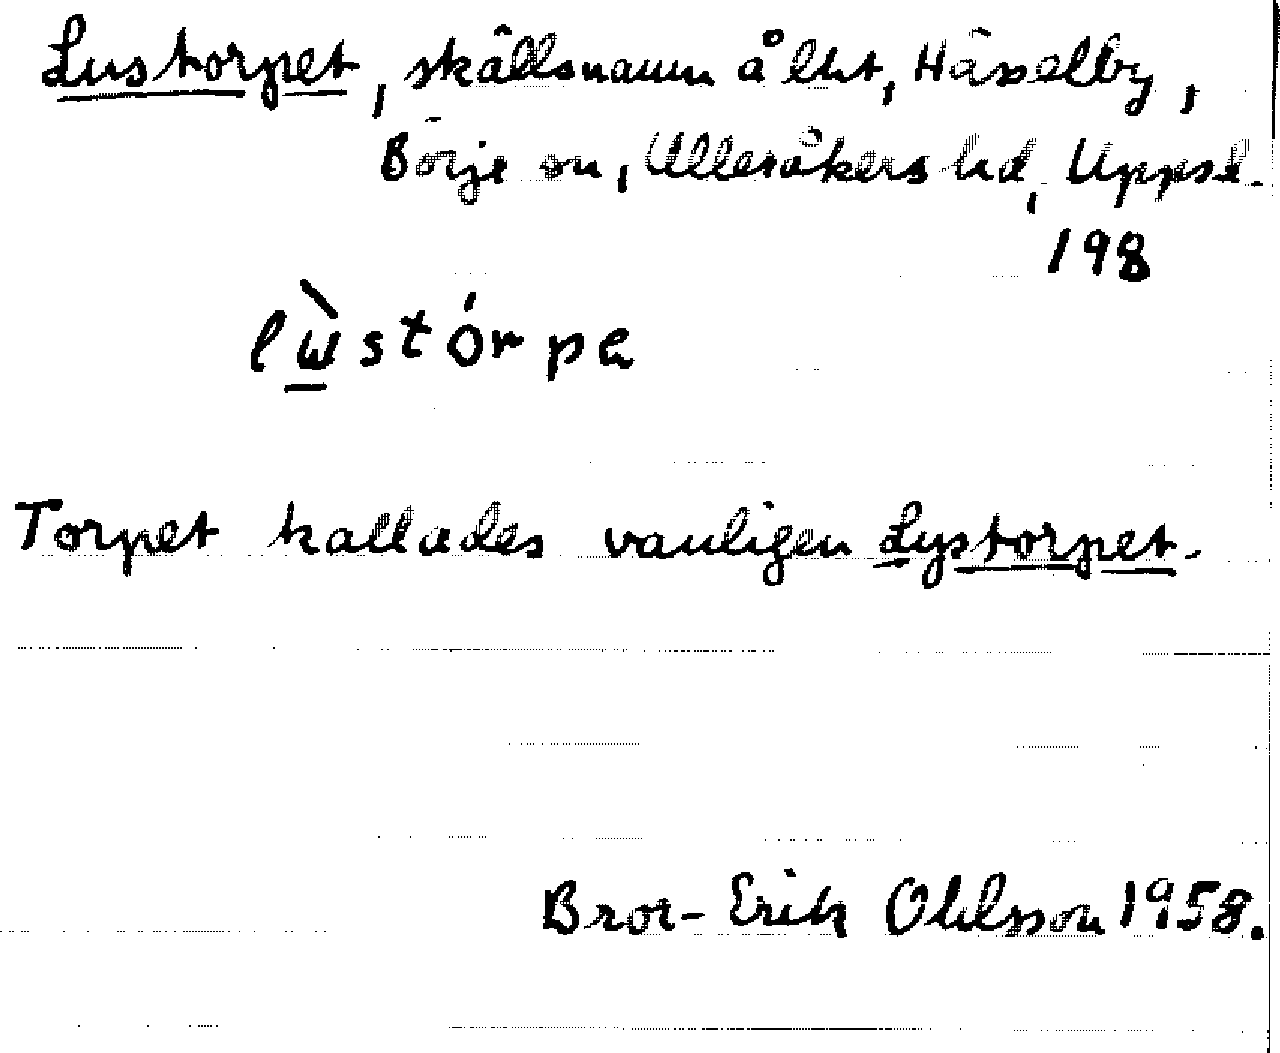 Lustorpet, skällsnamn å lht, Hässelby,
Börje sn, Ulleråkers hd, Uppsl.
198
lùstórpa
Torpet kallades vanligen Lystorpet.
Bror-Erik Ohlsson 1958.